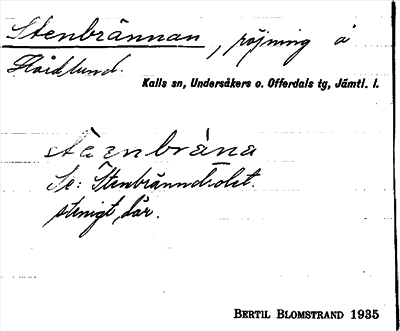 Stenbrännan, röjning å
Hårdlund.
Kalls sn, Undersåkers o. Offerdals tg, Jämtl. l.
stä̀nbrána
Se: Stenbrännholet.
stenigt där.
BERTIL BLOMSTRAND 1935